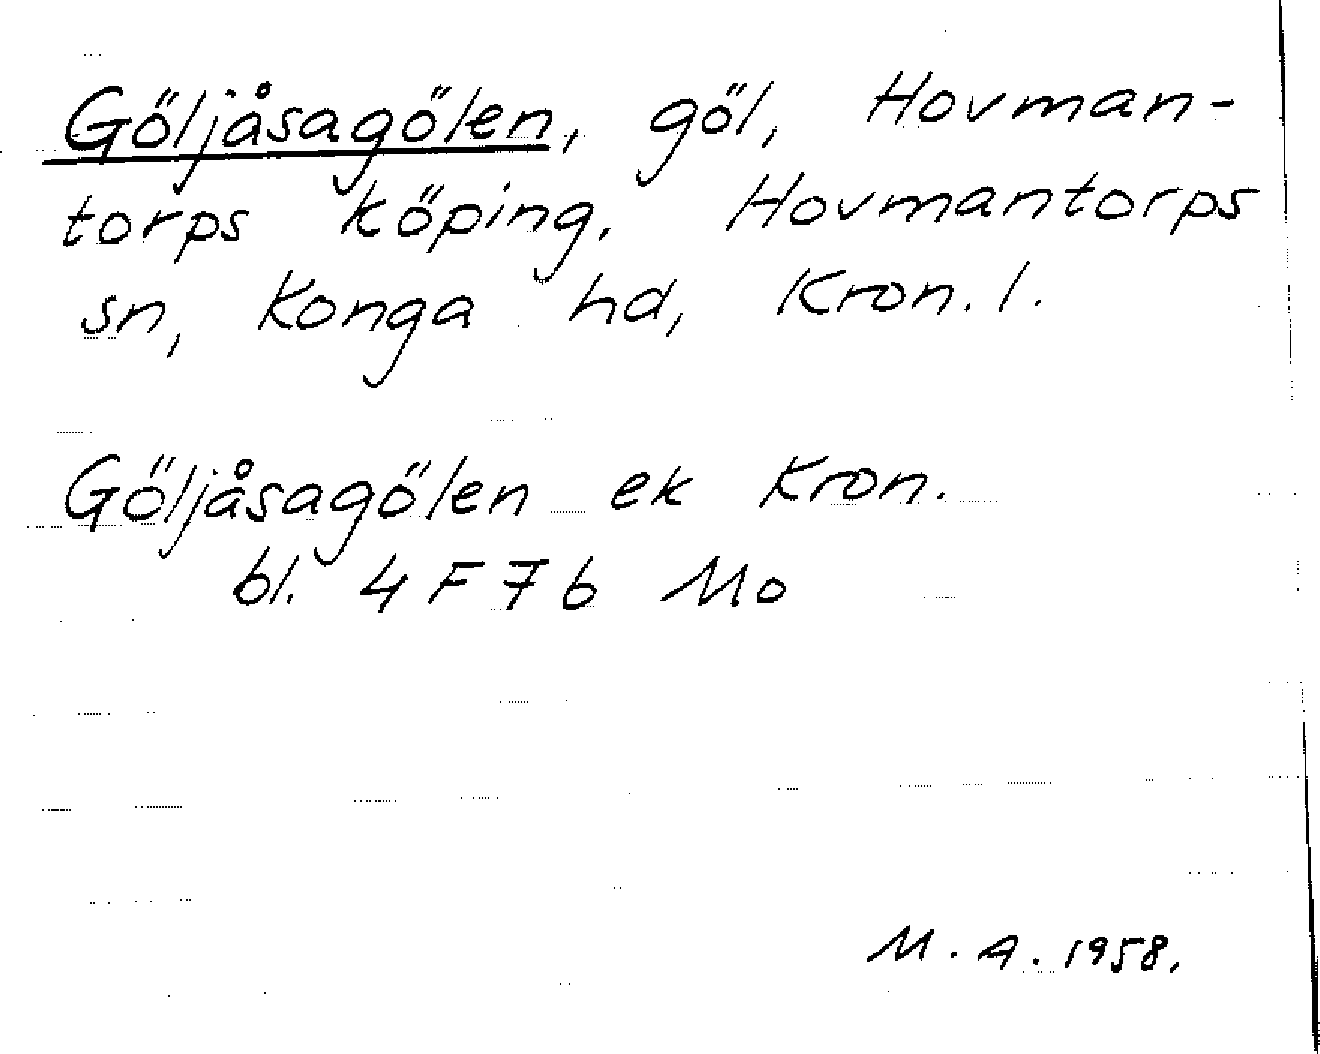 Göljåsagölen, göl, Hovman-
torps köping, Hovmantorps
sn, Konga hd, Kron. l.
Göljåsagölen ek Kron.
bl. 4 F 7 b Mo
M. A. 1958.